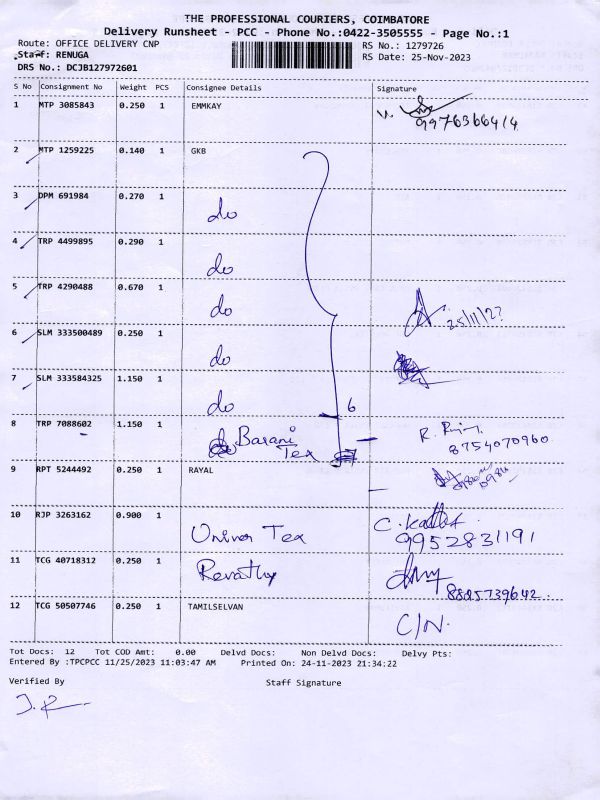 THE PROFESSIONAL COURIERS, COIMBATORE
Delivery Runsheet - PCC - Phone No.:0422-3505555 - Page No.:1
Route: OFFICE DELIVERY CNP RS No.: 1279726
Staff: RENUGA RS Date: 25-Nov-2023
DRS No.: DCJB127972601
S No Consignment No Weight PCS Consignee Details Signature
1 MTP 3085843 0.250 1 EMMKAY
9976366414
2 MTP 1259225 0.140 1 GKB
3 DPM 691984 0.270 1 do
4 TRP 4499895 0.290 1 do
5 TRP 4290488 0.670 1 do
25/11/23
6 SLM 333500489 0.250 1 do
7 SLM 333584325 1.150 1 do 6
8 TRP 7088602 1.150 1 Barani Tex
8754070960
9 RPT 5244492 0.250 1 RAYAL
10 RJP 3263162 0.900 1 Tex
9952831191
11 TCG 40718312 0.250 1 Revathy
8885739642
12 TCG 50507746 0.250 1 TAMILSELVAN C/N.
Tot Docs: 12 Tot COD Amt: 0.00 Delvd Docs: Non Delvd Docs: Delvy Pts:
Entered By :TPCPCC 11/25/2023 11:03:47 AM Printed On: 24-11-2023 21:34:22
Verified By Staff Signature
J.R